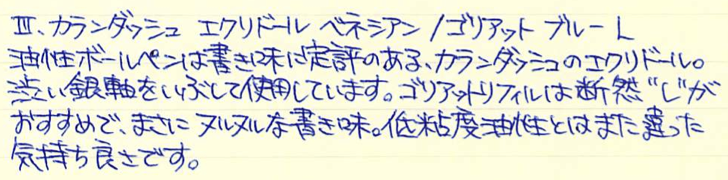 Ⅲ、カランダッシュ エクリドール ベネシアン / ゴリアット ブルー L
油性ボールペンは書き味に定評のある、カランダッシュのエクリドール。
渋い銀軸をいぶして使用しています。ゴリアットリフィルは断然“L”が
おすすめで、まさにヌルヌルな書き味。低粘度油性とはまた違った
気持ち良さです。